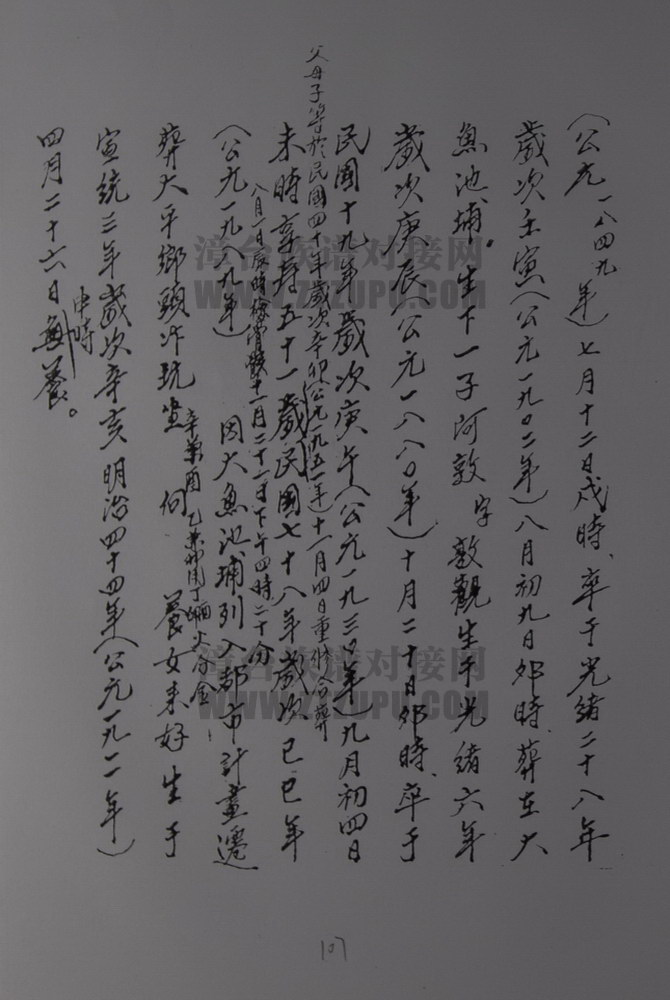 (公元一八四九年)七月十二日戌時、卒于光緒二十八年
歲次壬寅(公元一九0二年)八月初九日卯時、葬在大
魚池埔。生下一子阿敦字敦觀生于光緒六年
歲次庚辰(公元一八八0年)十月二十日卯時、卒于
民國十九年歲次庚午(公元一九三0年)九月初四日
父母子等於民國四十年歲次辛卯(公元一九五一年)十一月四日重修合葬
未時享壽五十一歲民國七十八年歲次己巳年
八月一日辰時 十一月二十一日下午四時二十分
(公元一九八九年) 因大魚池埔列入都市計畫遷
葬大平鄉頭汴坑坐 向 養女来好生于
辛 酉 乙 卯 丁 分金
宣統三年歲次辛亥明治四十四年(公元一九一一年)
四月二十六日申時 養。
107
漳台族谱对接网
WWW.ZTZUPU.COM
漳台族谱对接网
WWW.ZTZUPU.COM